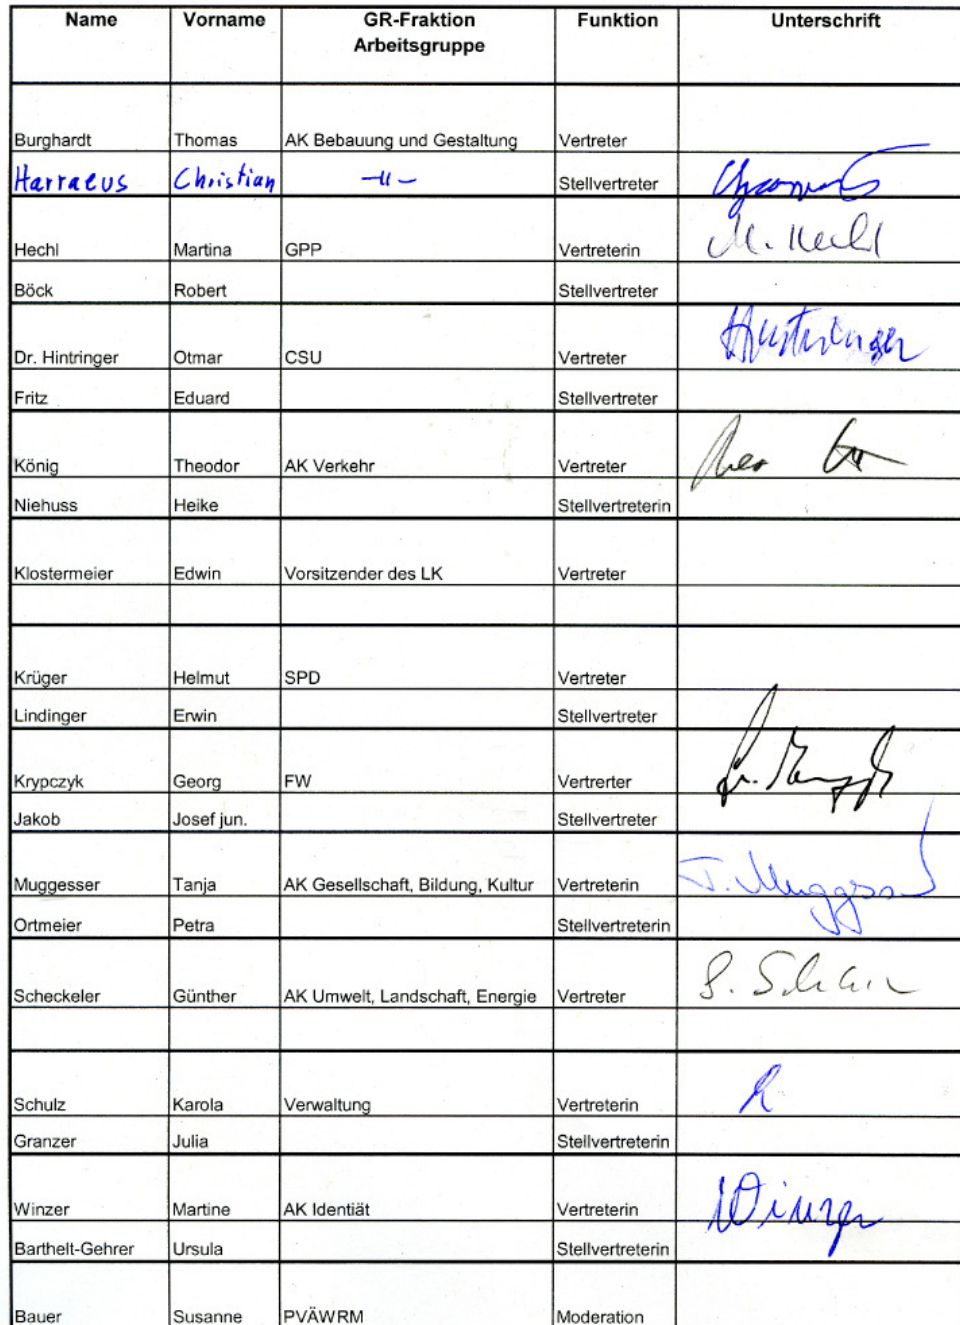 Name Vorname GR-Fraktion Funktion Unterschrift
Arbeitsgruppe
Burghardt Thomas AK Bebauung und Gestaltung Vertreter
Harraeus Christian -"- Stellvertreter
Hechl Martina GPP Vertreterin M. Hechl
Böck Robert Stellvertreter
Dr. Hintringer Otmar CSU Vertreter Hintringer
Fritz Eduard Stellvertreter
König Theodor AK Verkehr Vertreter
Niehuss Heike Stellvertreterin
Klostermeier Edwin Vorsitzender des LK Vertreter
Krüger Helmut SPD Vertreter
Lindinger Erwin Stellvertreter
Krypczyk Georg FW Vertrerter
Jakob Josef jun. Stellvertreter
Muggesser Tanja AK Gesellschaft, Bildung, Kultur Vertreterin T. Muggesser
Ortmeier Petra Stellvertreterin
Scheckeler Günther AK Umwelt, Landschaft, Energie Vertreter
Schulz Karola Verwaltung Vertreterin
Granzer Julia Stellvertreterin
Winzer Martine AK Identiät Vertreterin Winzer
Barthelt-Gehrer Ursula Stellvertreterin
Bauer Susanne PVÄWRM Moderation